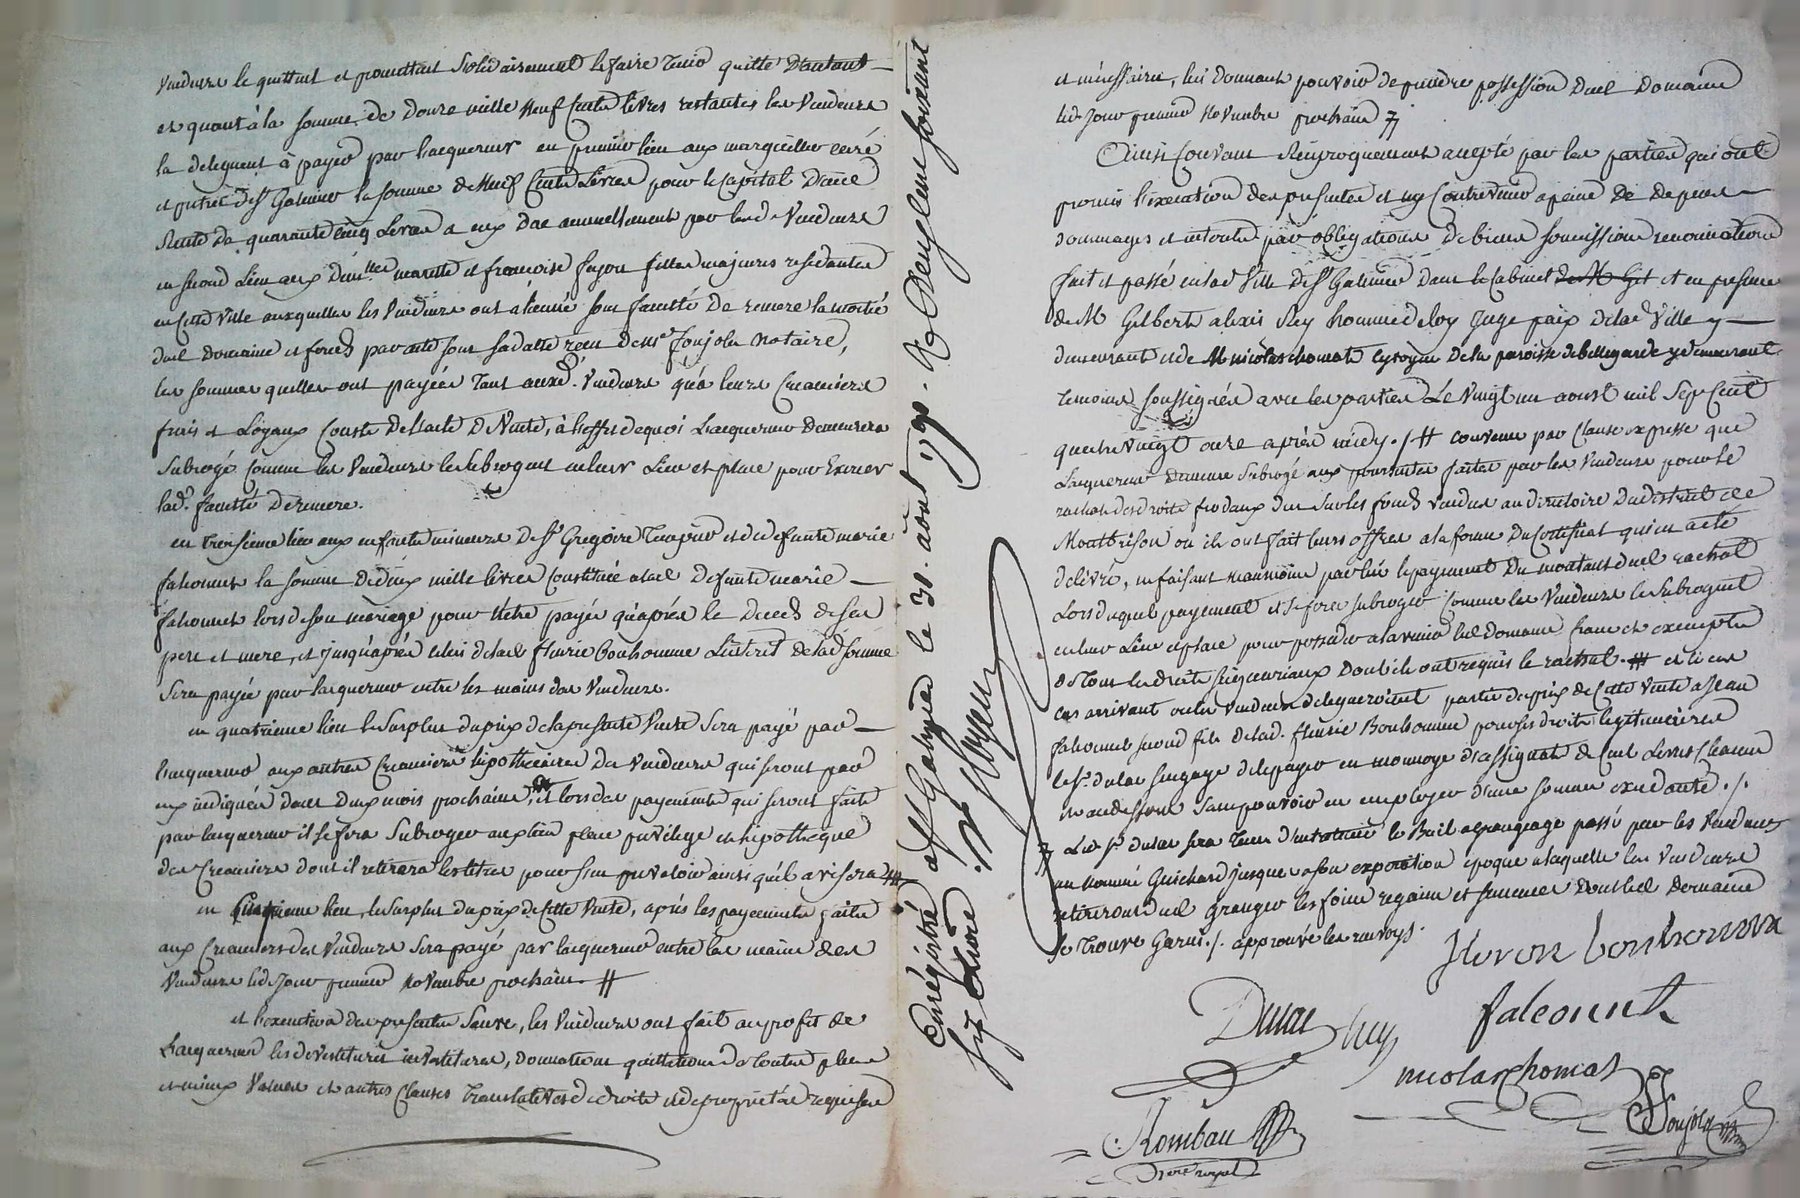 vendeurs le quittent et promettent solidairement le faire tenir quitte d'autant
et quant à la somme de douze mille neuf cents livres restantes les vendeurs
la deleguent à payer par l'acquereur en premier lieu aux marguilliers curé
et prêtres de St Galmier la somme de neuf cents Livres pour le capital d'une
Rente de quarante cinq Livres a eux due annuellement par lesd. vendeurs
en second Lieu aux dem.lles mariette et francoise filles majeures residantes
en cette ville auxquelles les vendeurs ont aliéné sous faculté de remere la moitié
dud domaine et fonds par acte sous sa datte reçu de me. Jonjolen notaire,
les sommes quelles ont payées tant auxd. vendeurs qu'a leurs creanciers
frais et Loyaux Couste de l'acte de Vente, à l'effet de quoi l'acquereur demeurera
subrogé comme les vendeurs le subrogent en leur Lieu et place pour Exercer
lad. faculté de remere.
en troisieme lieu aux enfants mineurs de Sr Gregoire et de defunte marie
falconnet la somme de deux mille livres constituée a lad defunte marie
falconnet lors de son mariage pour n'etre payée qu'après le deces de ses
pere et mere, et jusqu'après celui de lad fleurie bonhomme L'interet de lad somme
sera payé par l'acquereur entre les mains des vendeurs.
en quatrieme lieu le surplus du prix de la presente Vente sera payé par
l'acquereur aux autres creanciers hipothecaires des vendeurs qui seront par
eux indiqués dans deux mois prochains, et lors des payements qui seront faits
par l'acquereur il se fera subroger aux lieu place privilege et hipotheque
des creanciers dont il retirera les titres pour s'en prevaloir ainsi qu'il avisera
en cinquieme lieu, le surplus du prix de cette Vente, après les payements faits
aux creanciers des vendeurs sera payé par l'acquereur entre les mains des
vendeurs led. Jour premier novembre prochain #
et l'execution des presentes sauve, les vendeurs ont fait au profit de
l'acquereur les devestitures investitures, donnations quittations de toutes plus
et mieux values et autres clauses translatives de droits et de proprietés requises
Enrégistré a St Galmier le 31. août 1791. R
et necessaires, lui donnant pouvoir de prendre possession dud Domaine
led. Jour premier novembre prochain
Ainsi convenu reciproquement accepté par les parties qui ont
promis l'execution des presentes et n'y contrevenir a peine de depens
dommages et interets par obligations de biens soumissions renonciations
fait et passé en lad ville de St Galmier dans le cabinet de M et en presence
de M Gilbert alexis Rey homme de loy Juge paix de lad Ville y
demeurant et de M nicolas thomas cytoyen de la paroisse de bellegarde y demeurant
temoins soussignés avec les parties Le vingt un aoust mil sept cent
quatre vingt onze après midy. /. # convenu par clause expresse que
L'acquereur demeure subrogé aux poursuites faites par les vendeurs pour le
rachat des droits feodaux dus sur les fonds vendus au directoire du district de
Montbrison ou ils ont fait leurs offres a la forme du certificat qui en a eté
delivré, en faisant neanmoins par lui le payement du montant dud rachat
Lors duquel payement il se fera subroger comme les vendeurs le subrogent
en leur Lieu et place pour posseder a l'avenir led domaine franc et exempt
de tous les droits seigneuriaux dont ils ont requis le rachat. et le cas
cas arrivant ou les vendeurs delegueroient partie du prix de cette vente a Jean
falconnet second fils de lad. fleurie Bonhomme pour ses droits legitimaires
le Sr. dulac s'engage de le payer en monnoye d'assignats de cent Livres chacun
et au dessous sans pouvoir en employer d'une somme excedante. /.
Led. Sr. dulac sera tenu d'entretenir le Bail a grangeage passé par les vendeurs
au nommé Guichard jusques a son expiration epoque a laquelle les vendeurs
retireront dud granger les foins regains et semences dont led domaine
se trouve Garni. /. approuvé les renvoys.
fleurie bonhomme
Dulac
Rey
falconnet
nicolas thomas
Rombau
nore royal
Jonjolen